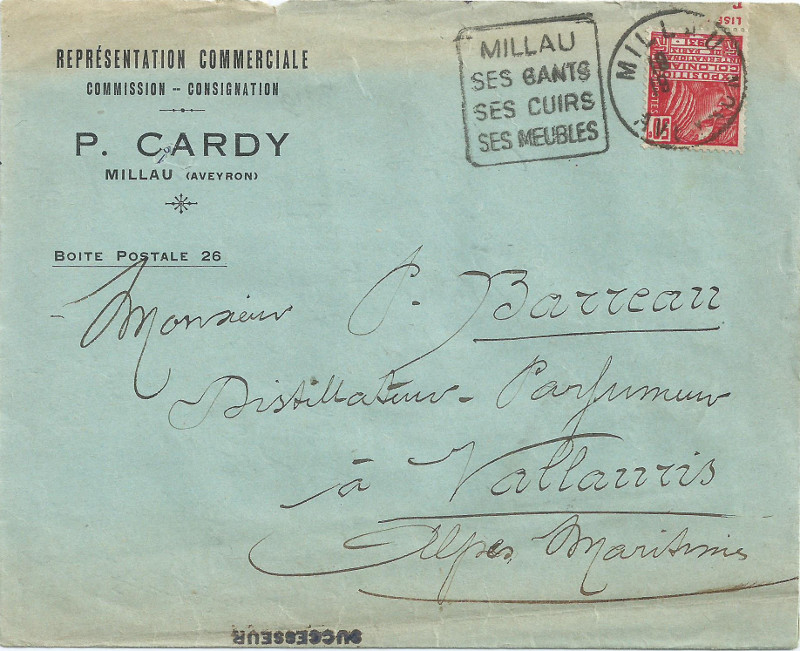 REPRÉSENTATION COMMERCIALE
COMMISSION -- CONSIGNATION
P. CARDY
MILLAU (AVEYRON)
BOITE POSTALE 26
MILLAU
SES GANTS
SES CUIRS
SES MEUBLES
MILLAU
LISE
EXPOSITION
COLONIALE
INTERNATIONALE
1931
POSTES
50
Monsieur P. Barreau
Distillateur - Parfumeur
à Vallauris
Alpes Maritimes
SUCCESSEUR